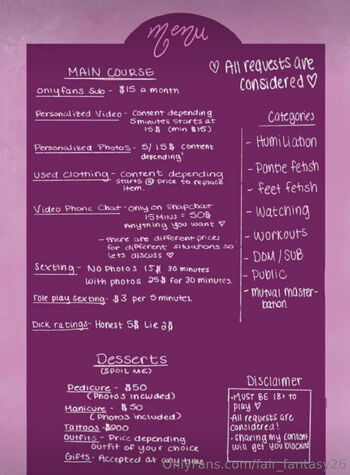 menu
MAIN COURSE
onlyfans Sub - $15 a month
Personalized Video - Content depending
5 minutes starts at
15$ (min $15)
Personalized Photos - 5/15$ content
depending!
used clothing - Content depending
starts @ price to replace
item.
Video Phone Chat - only on snapchat
15 mins = 50$
Anything you want ♡
- there are different prices
for different situations so
lets discuss ♡
Sexting - No Photos 15$ 30 minutes
with photos 25$ for 30 minutes.
role play sexting - $3 per 5 minutes.
Dick ratings - Honest 5$ Lie 2$
Desserts
(SPOIL ME)
Pedicure - $50
(Photos included)
Manicure - $50
(Photos included)
Tattoos - $200
outfits - Price depending
outfit of your choice
Gifts - Accepted at anytime
♡ All requests are
considered ♡
Categories
- Humiliation
- Pantie fetish
- feet fetish
- Watching
- Workouts
- DOM / SUB
- Public
- mutual master-
bation
Disclaimer
• MUST BE 18+ to
play ♡
• All requests are
considered!
• sharing my content
will get you blocked
OnlyFans.com/fair_fantasy26